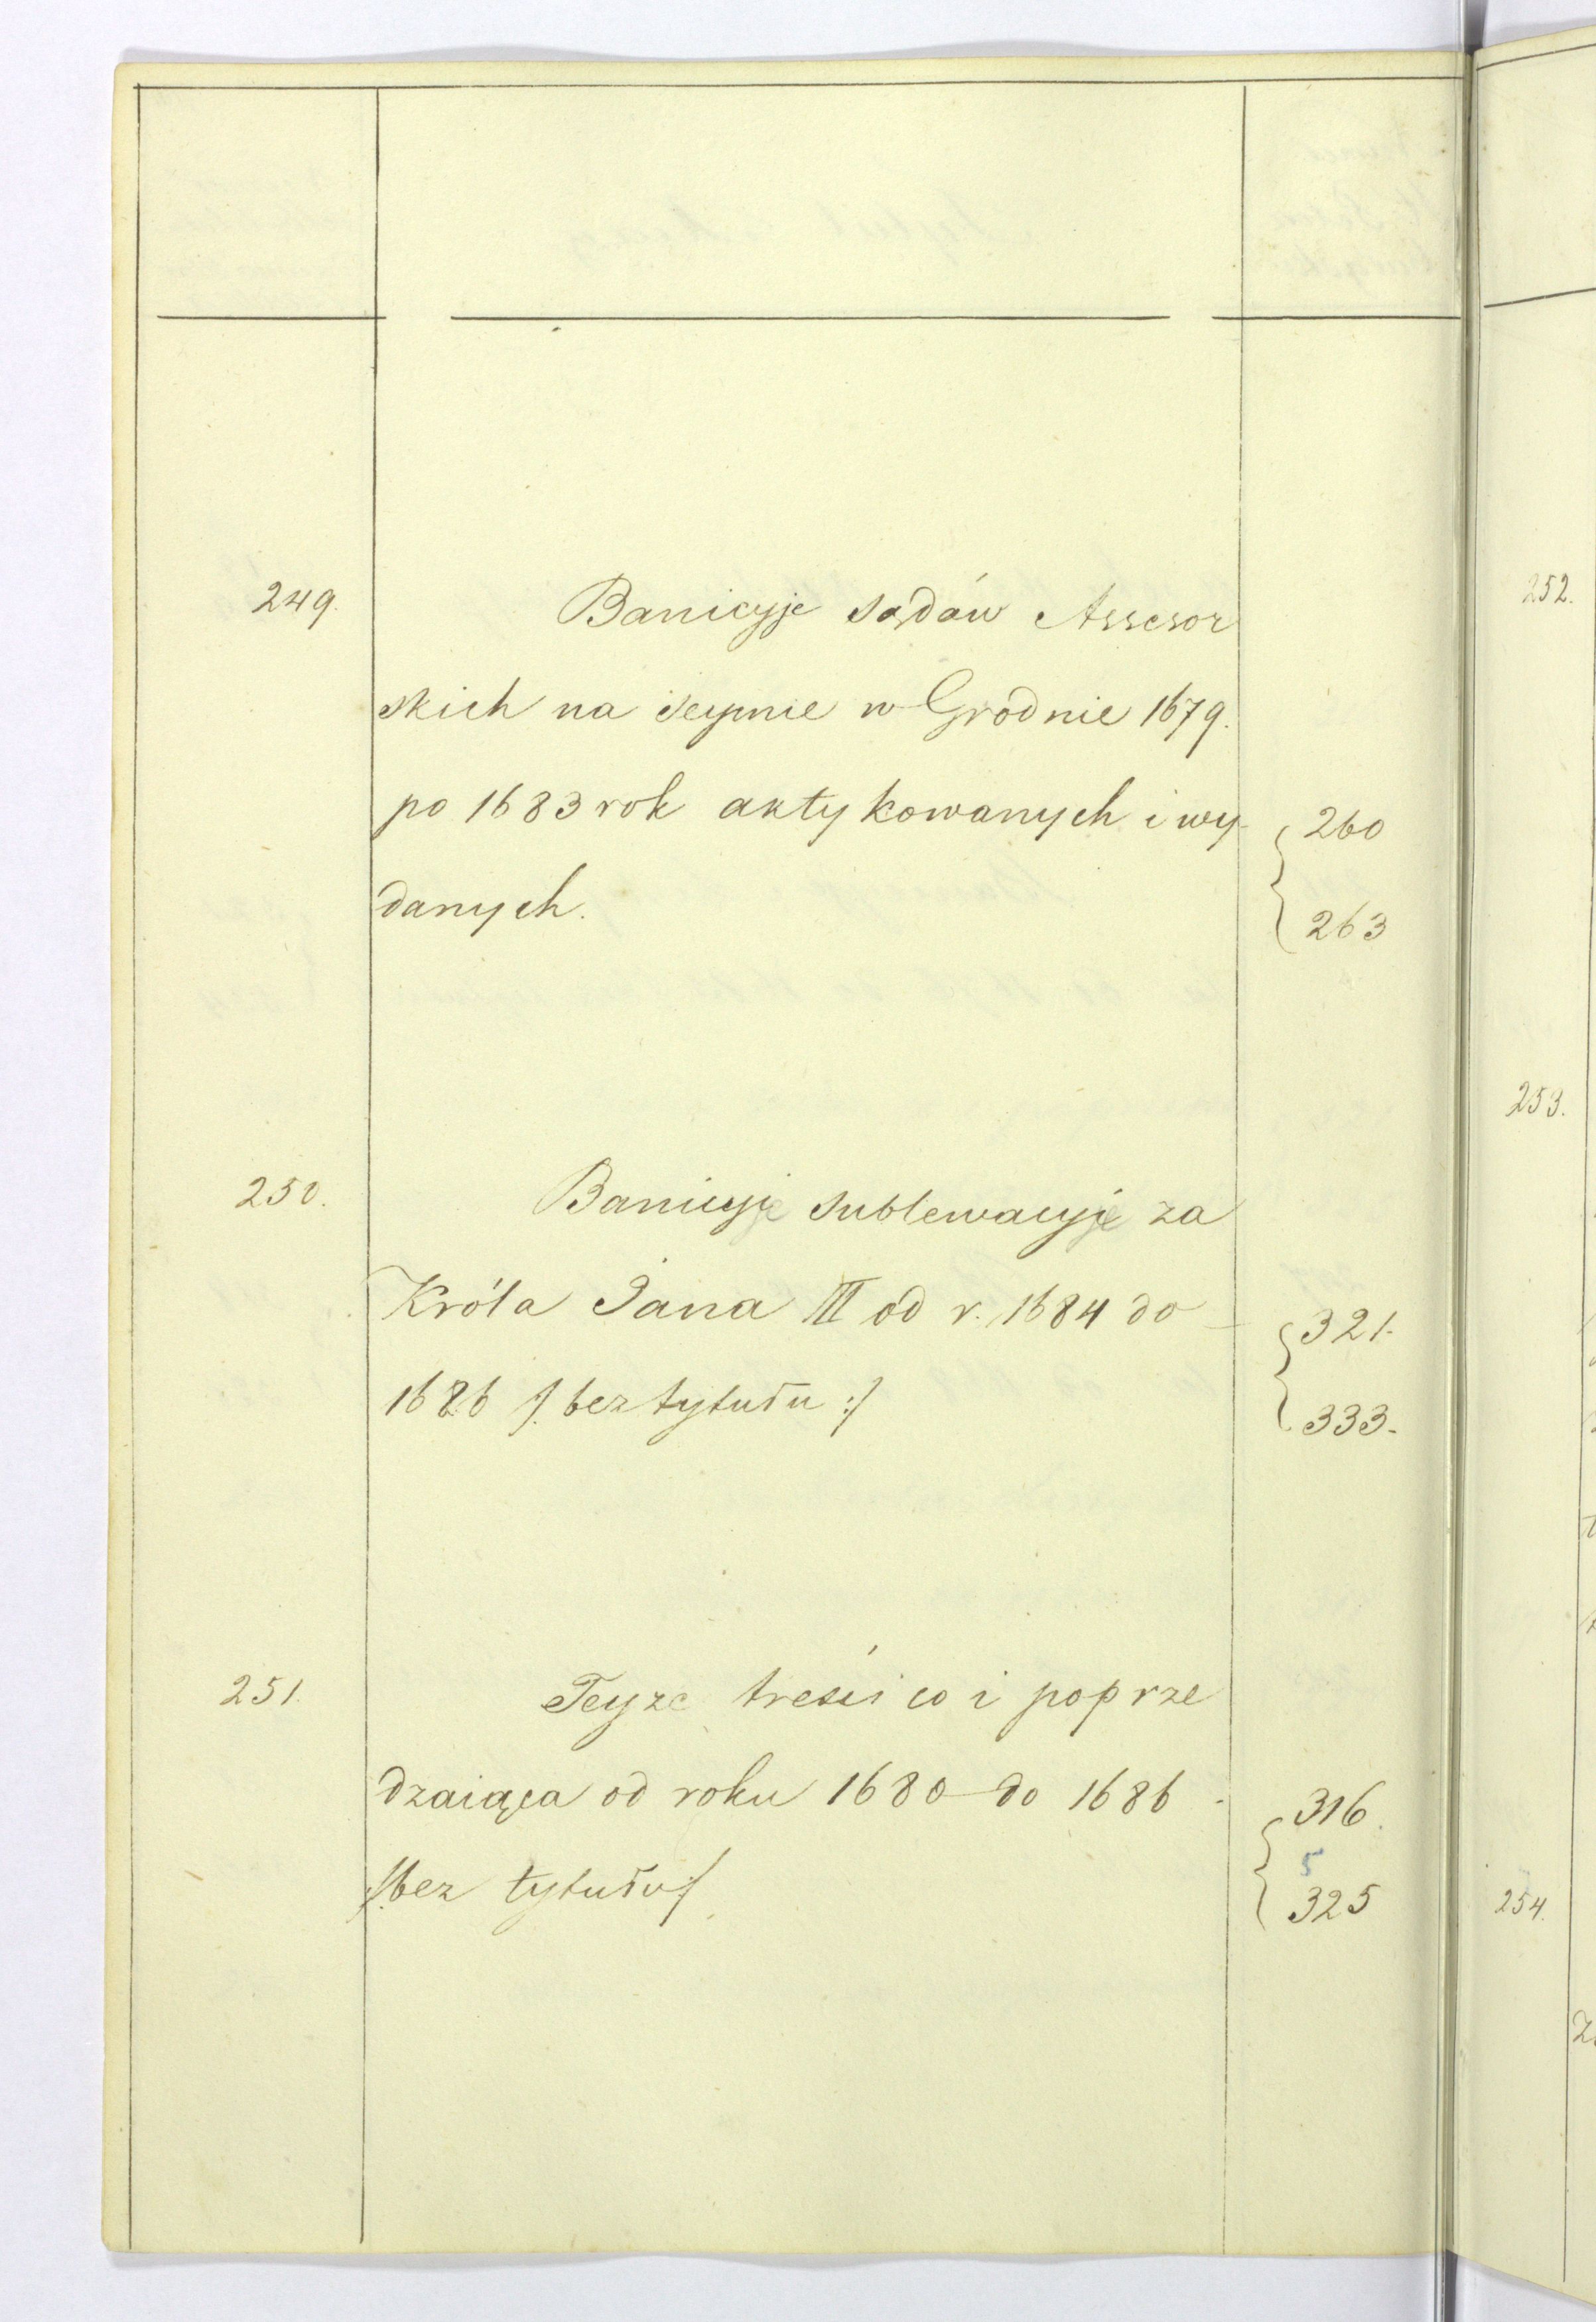 249. Banicyje sądów Assesor
skich na seymie w Grodnie 1679.
po 1683 rok aktykowanych i wy-
danych.
260
263
250. Banicyje sublewacyje za
Króla Jana III od r. 1684 do
1686 /: bez tytułu :/
321.
333.
251. Teyze treści co i poprze
dzaiąca od roku 1680 do 1686
/: bez tytułu :/
316.
5
325
252.
253.
254.